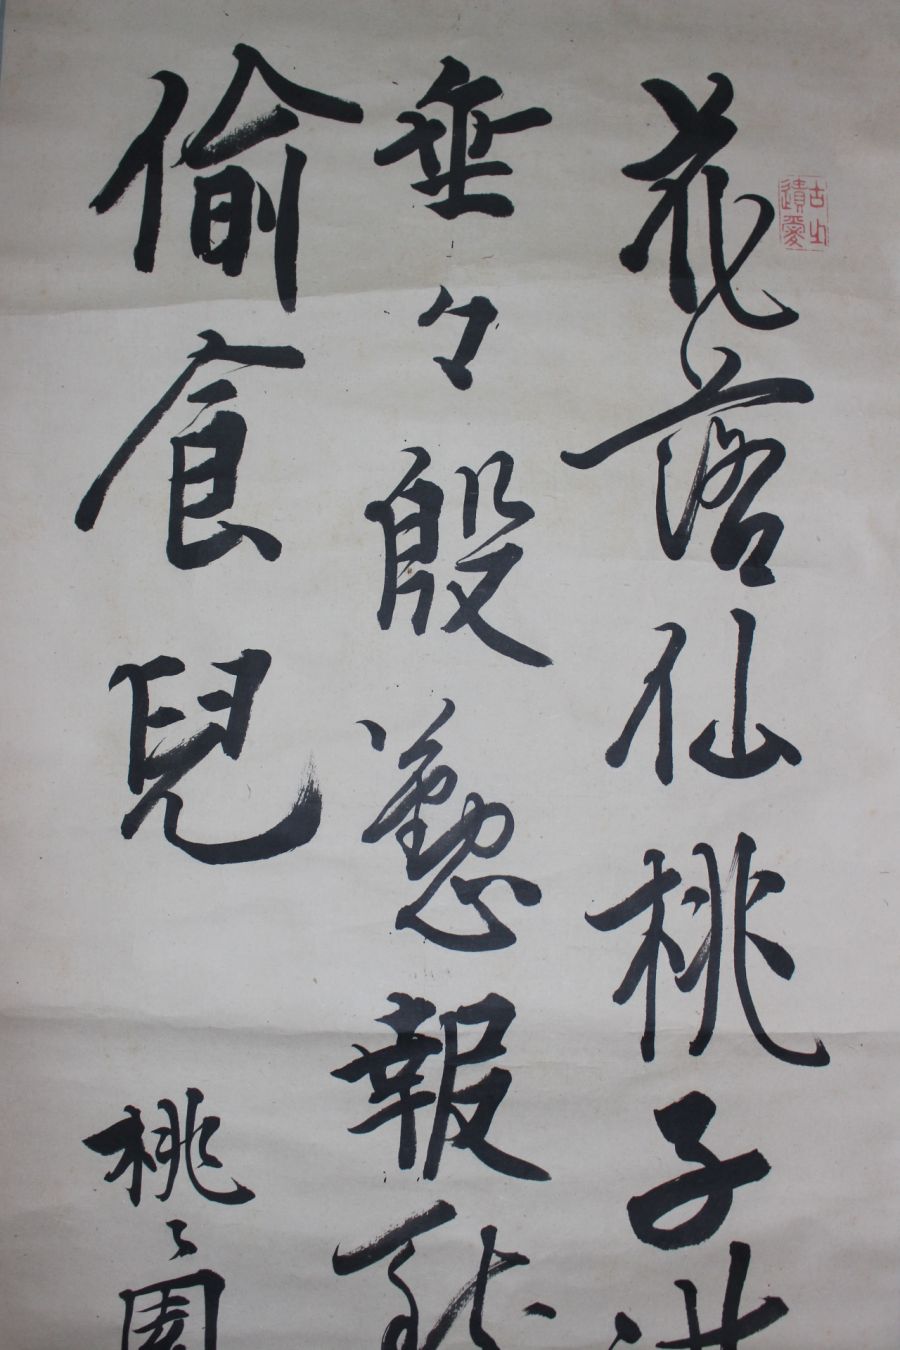 花落仙桃子
垂々殷懃報
偷食兒
桃園
古之
遺愛